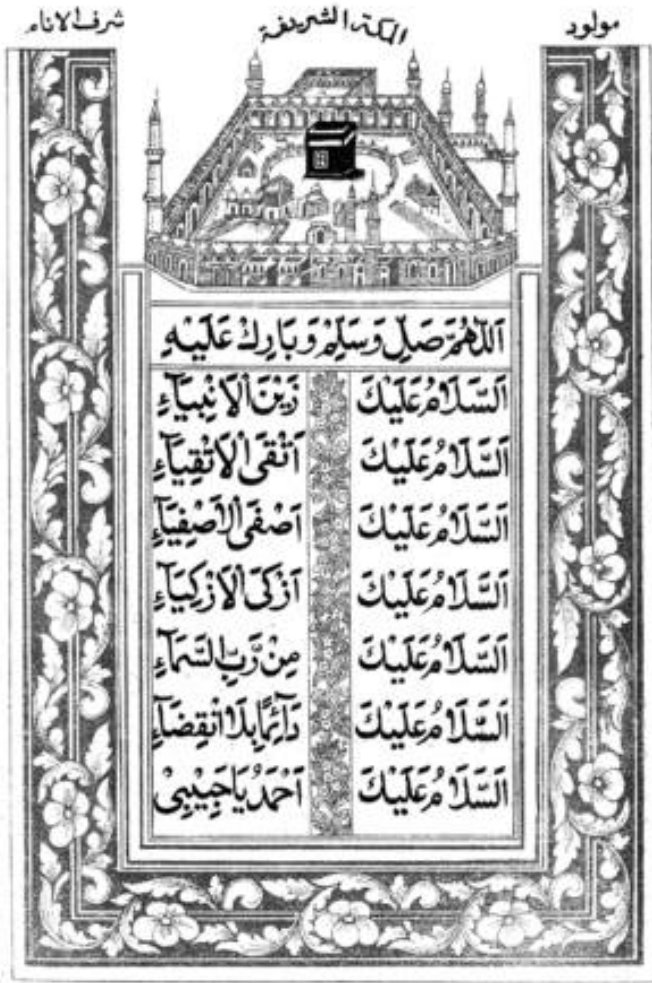 مولود
المكة الشريفة
شرف الانام
اَللّٰهُمَّ صَلِّ وَسَلِّمْ وَبَارِكْ عَلَيْهِ
اَلسَّلَامُ عَلَيْكَ زَيْنَ الْاَنْبِيَآءِ
اَلسَّلَامُ عَلَيْكَ اَتْقَى الْاَتْقِيَآءِ
اَلسَّلَامُ عَلَيْكَ اَصْفَى الْاَصْفِيَآءِ
اَلسَّلَامُ عَلَيْكَ اَزْكَى الْاَزْكِيَآءِ
اَلسَّلَامُ عَلَيْكَ مِنْ رَّبِّ السَّمَآءِ
اَلسَّلَامُ عَلَيْكَ دَآئِمًا بِلَا انْقِضَآءِ
اَلسَّلَامُ عَلَيْكَ اَحْمَدُ يَا حَبِيْبِىْ